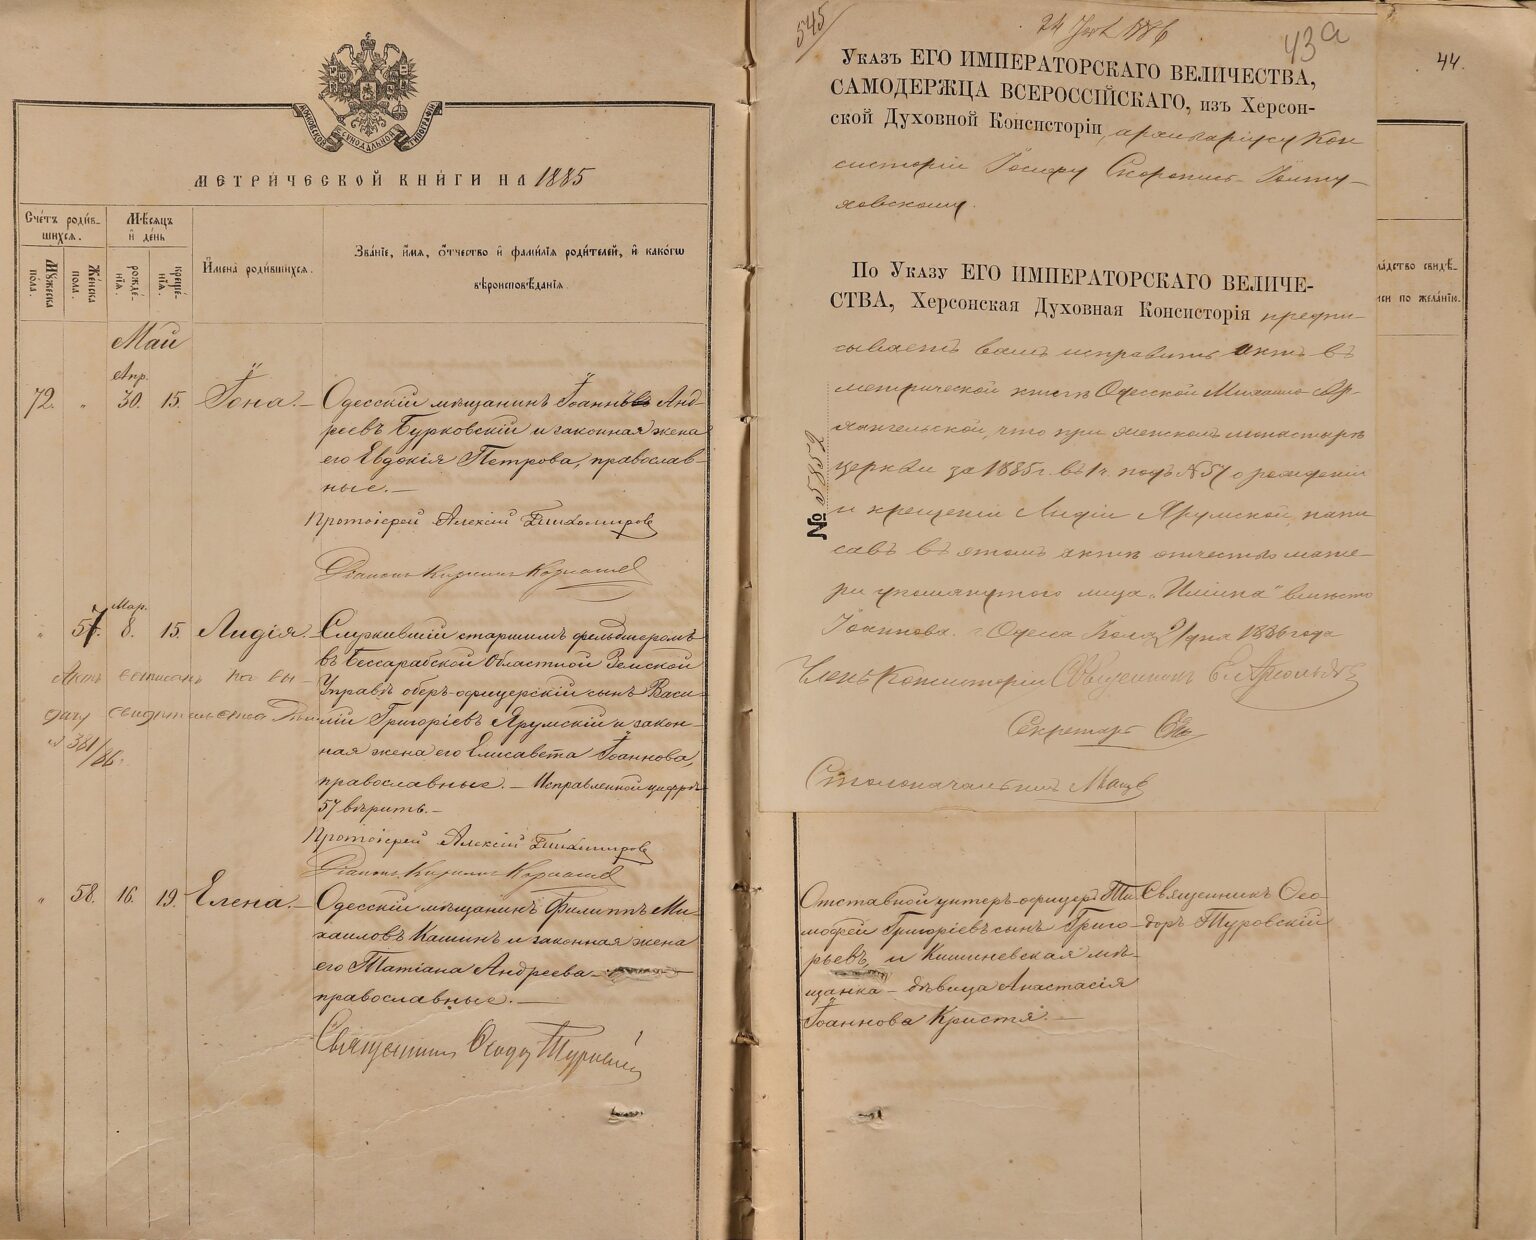 МОСКОВСКОЙ СѴНОДАЛЬНОЙ ТИПОГРАФІИ
МЕТРИ́ЧЕСКОЙ КНИ́ГИ НА 1885
Счетъ роди́в-
шихся.
Мѣсяцъ
и де́нь
Имена́ роди́вшихся.
Зва́ніе, и́мя, о́тчество и фами́лія роди́телей, и како́гѡ
вѣроисповѣ́данія.
Мꙋжеска
по́ла.
Же́нска
пола.
рожде́-
нія.
креще́-
нія.
Май
Апр.
72. „ 30. 15. Іона. —
Одесскій мѣщанинъ Іоаннъ Анд-
реевъ Бурковскій и законная жена
его Евдокія Петрова, православ-
ные. —
Протоіерей Алексій Тихомировъ
Діаконъ Кириллъ
Мар.
„ 57. 8. 15. Лидія. —
Служившій старшимъ фельдшеромъ
въ Бессарабской Областной Земской
Управѣ оберъ-офицерскій сынъ Васи-
лій Григоріевъ Ярумскій и закон-
ная жена его Елисавета Іоаннова,
православные. — Исправленной цифрѣ
57 вѣрить. —
Протоіерей Алексій Тихомировъ
Діаконъ Кириллъ
Актъ выписанъ на вы-
дачу свидѣтельства
№ 381/86.
„ 58. 16. 19. Елена. —
Одесскій мѣщанинъ Филиппъ Ми-
хаиловъ Кашинъ и законная жена
его Татіана Андреева —
православные. —
Священникъ Ѳеодоръ Туровскій
545/
24 1886
43а
Указъ ЕГО ИМПЕРАТОРСКАГО ВЕЛИЧЕСТВА,
САМОДЕРЖЦА ВСЕРОССІЙСКАГО, изъ Херсон-
ской Духовной Консисторіи, архиваріусу Кон
систоріи Іосифу Скоропись-Іолту-
ховскому.
По Указу ЕГО ИМПЕРАТОРСКАГО ВЕЛИЧЕ-
СТВА, Херсонская Духовная Консисторія предпи-
сываетъ вамъ исправить актъ въ
метрической книгѣ Одесской Михаило-Ар-
хангельской, что при женскомъ монастырѣ
церкви за 1885 г. въ 1 ч. подъ № 57 о рожденіи
и крещеніи Лидіи Ярумской, напи
савъ въ этомъ актѣ отчество мате-
ри упомянутого лица „Ильина" вмѣсто
Іоаннова. Одесса Іюля 21 дня 1886 года
Членъ Консисторіи Священникъ
Секретарь
Столоначальникъ
№ 5852
44.
ла́дство свидѣ-
писи по жела́нію.
Отставной унтеръ-офицеръ Ти-
моѳей Григоріевъ сынъ Григо-
рьевъ, и Кишиневская мѣ-
щанка — дѣвица Анастасія
Іоаннова Кристя. —
Священникъ Ѳео-
доръ Туровскій